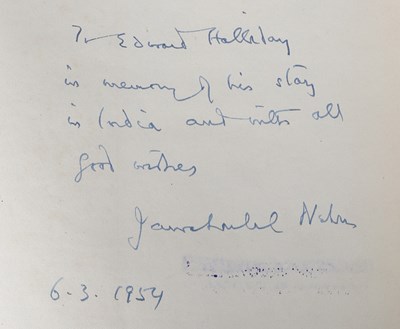 To Edward Halliday
in memory of his stay
in India and with all
good wishes
Jawaharlal Nehru
6.3.1954